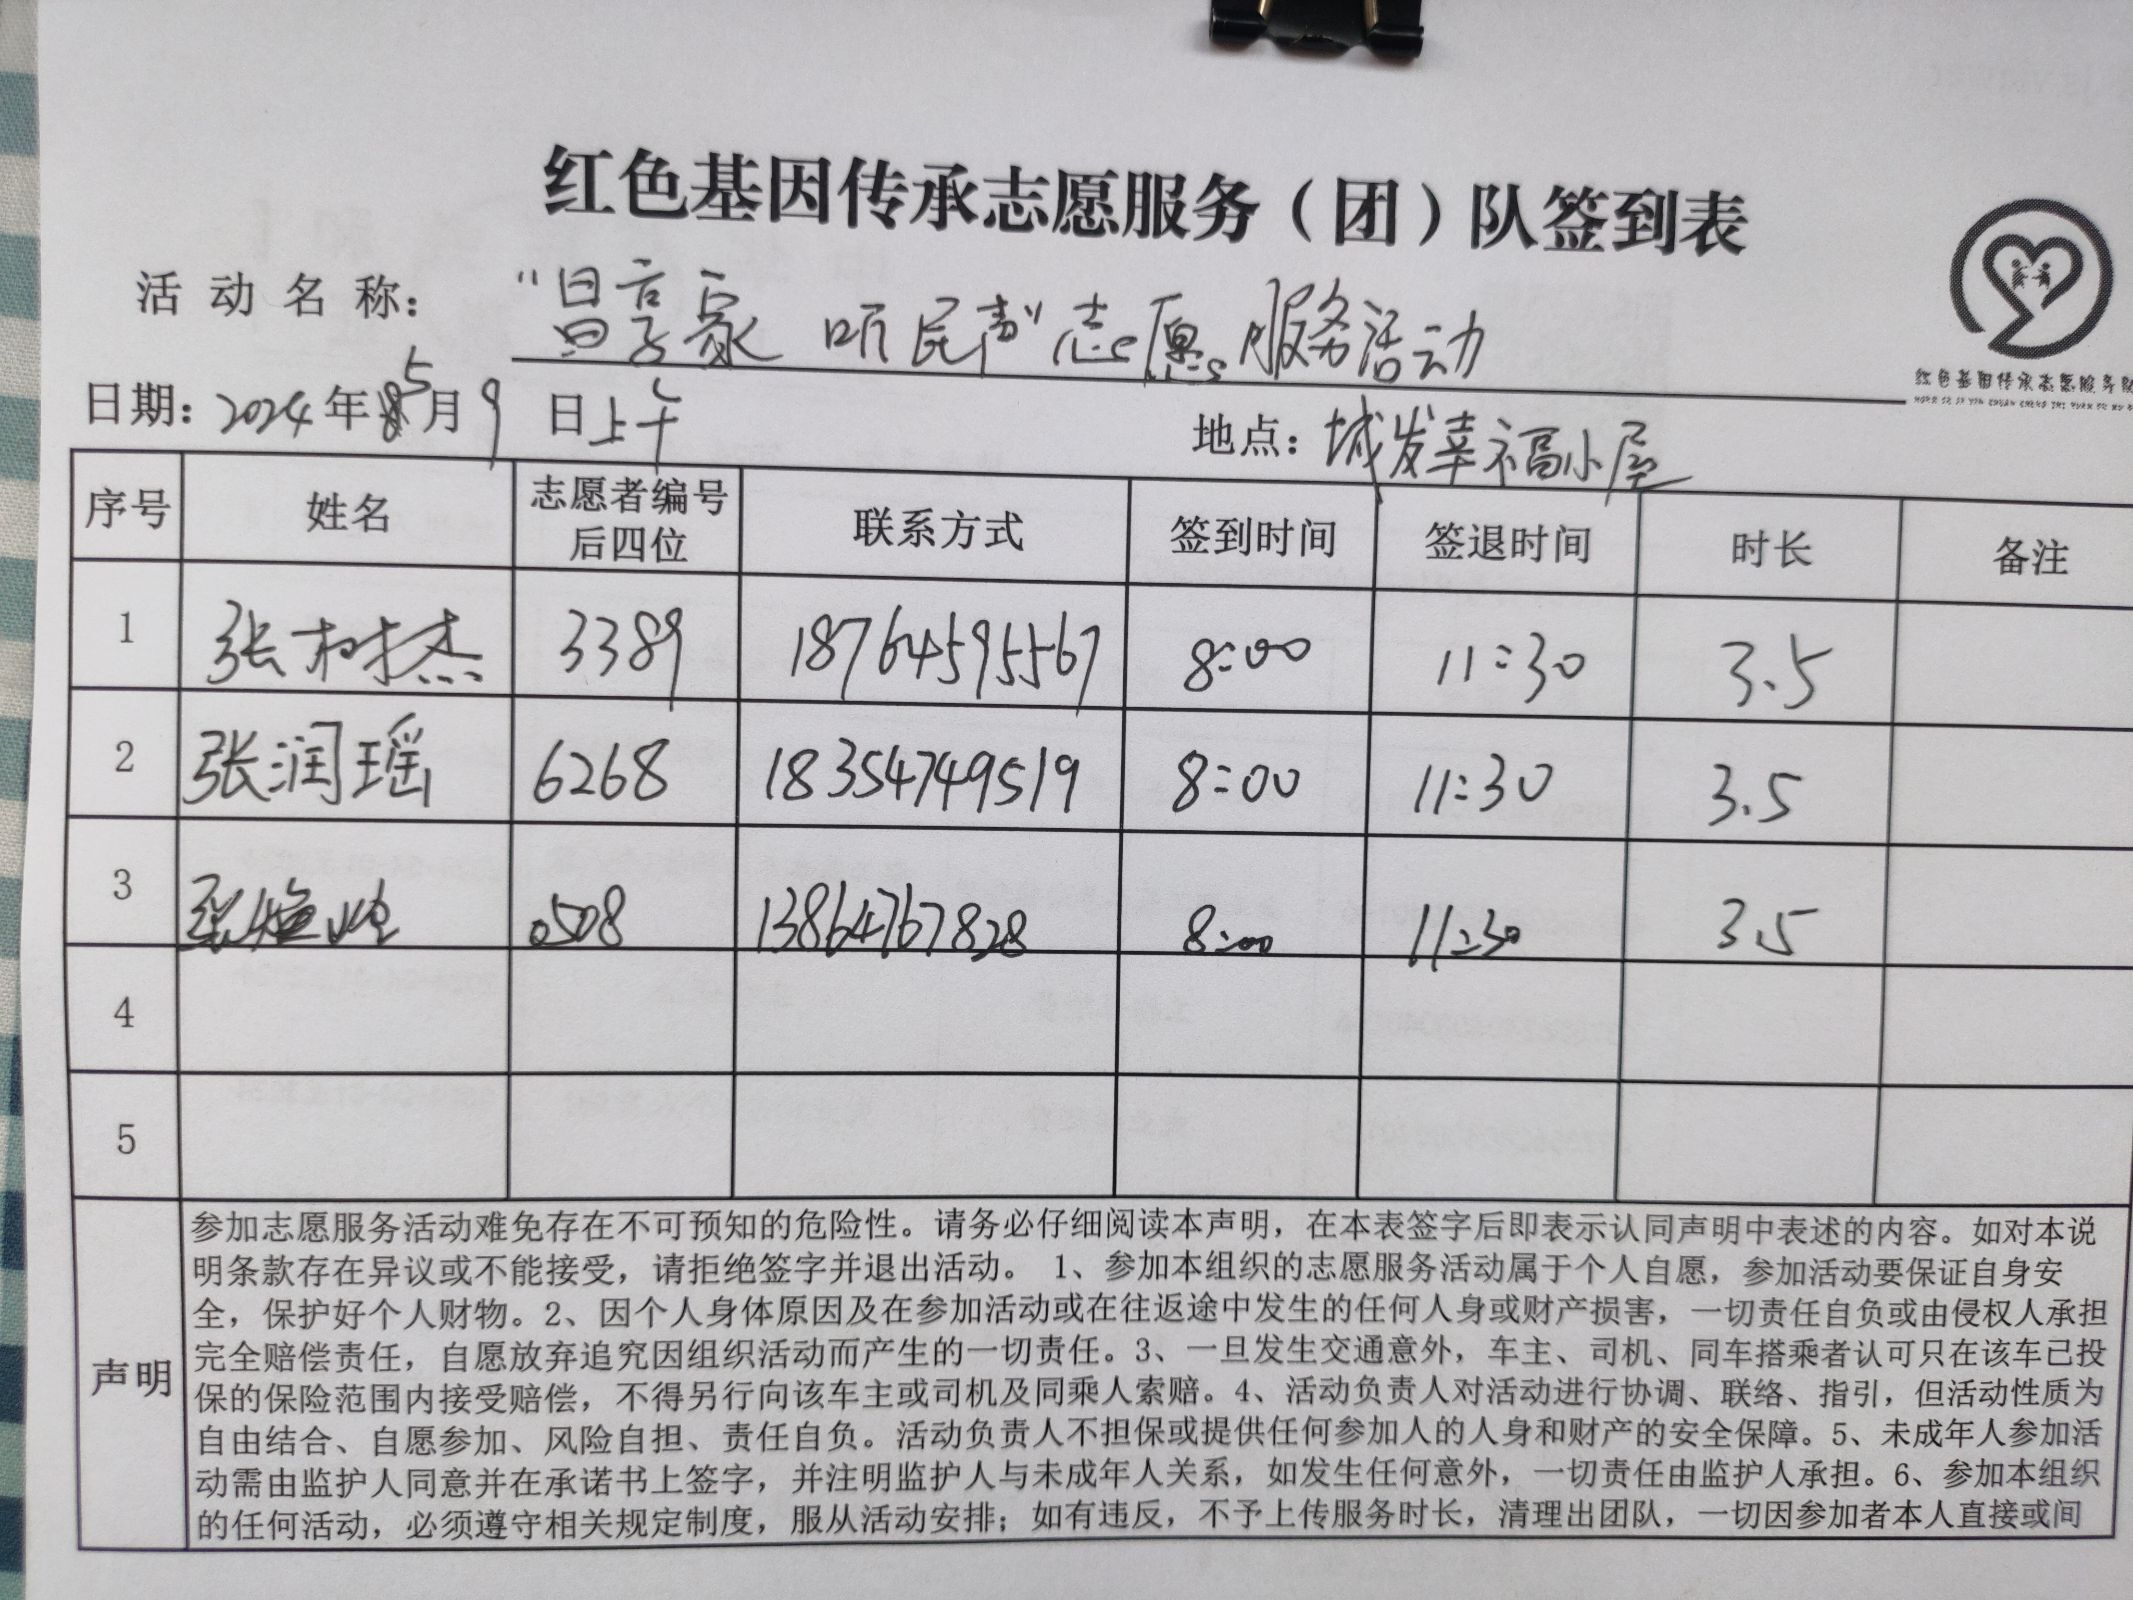 红色基因传承志愿服务（团）队签到表
活动名称： “昌享家 听民声”志愿服务活动
红色基因传承志愿服务队
日期：2024年5月9日上午 地点：城发幸福小屋
序号 姓名 志愿者编号后四位 联系方式 签到时间 签退时间 时长 备注
1 张树杰 3389 18764595567 8:00 11:30 3.5
2 张润瑶 6268 18354749519 8:00 11:30 3.5
3 0508 13864767828 8:00 11:30 3.5
4
5
声明
参加志愿服务活动难免存在不可预知的危险性。请务必仔细阅读本声明，在本表签字后即表示认同声明中表述的内容。如对本说
明条款存在异议或不能接受，请拒绝签字并退出活动。 1、参加本组织的志愿服务活动属于个人自愿，参加活动要保证自身安
全，保护好个人财物。2、因个人身体原因及在参加活动或在往返途中发生的任何人身或财产损害，一切责任自负或由侵权人承担
完全赔偿责任，自愿放弃追究因组织活动而产生的一切责任。3、一旦发生交通意外，车主、司机、同车搭乘者认可只在该车已投
保的保险范围内接受赔偿，不得另行向该车主或司机及同乘人索赔。4、活动负责人对活动进行协调、联络、指引，但活动性质为
自由结合、自愿参加、风险自担、责任自负。活动负责人不担保或提供任何参加人的人身和财产的安全保障。5、未成年人参加活
动需由监护人同意并在承诺书上签字，并注明监护人与未成年人关系，如发生任何意外，一切责任由监护人承担。6、参加本组织
的任何活动，必须遵守相关规定制度，服从活动安排；如有违反，不予上传服务时长，清理出团队，一切因参加者本人直接或间